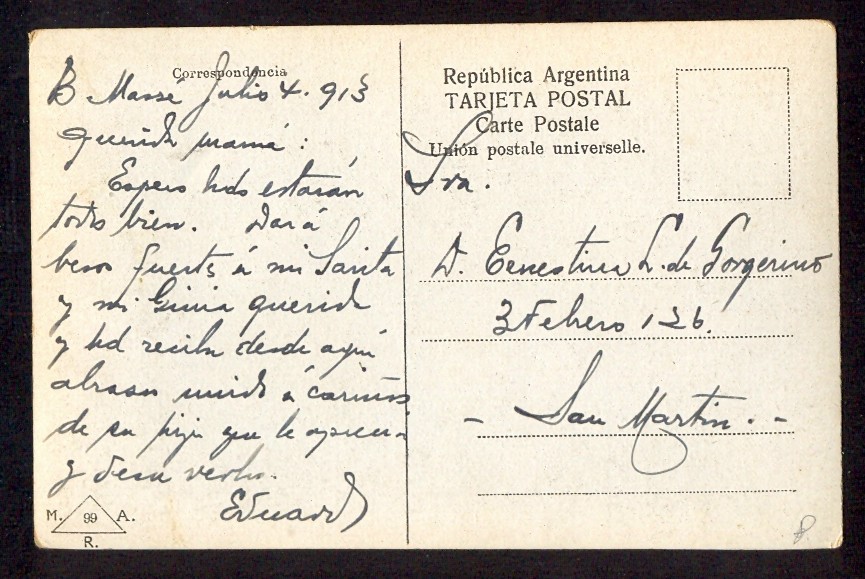 Correspondencia
B Massé Julio 4. 913
Querida mamá:
Espero Uds estarán
todos bien. Dará
besos fuertes á mi Sarita
y mi querida
y Ud reciba desde aquí
abrazos unido á cariños
de su hijo que le aprecia
y desea verla.
Eduardo
M. 99 A.
R.
República Argentina
TARJETA POSTAL
Carte Postale
Unión postale universelle.
Sra.
D. Ernestina L. de Gorgerino
3 Febrero 126.
- San Martin. -